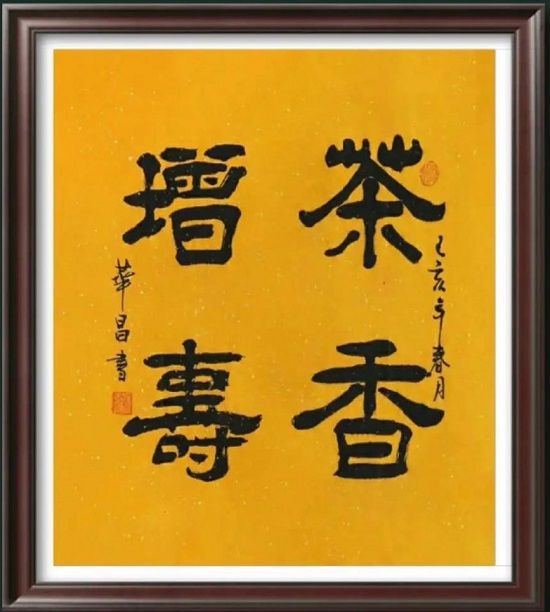 茶香
增壽
己亥年春月
華昌書